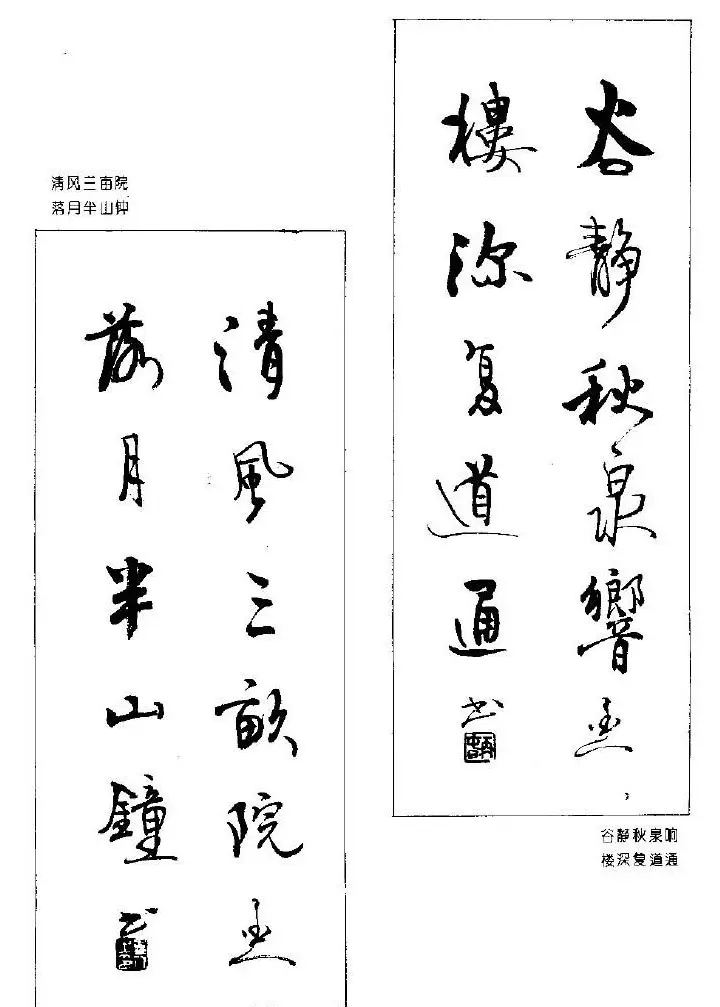 谷静秋泉響
樓深复道通
书
谷静秋泉响
楼深复道通
清风三亩院
落月半山钟
清風三畝院
落月半山鐘
书